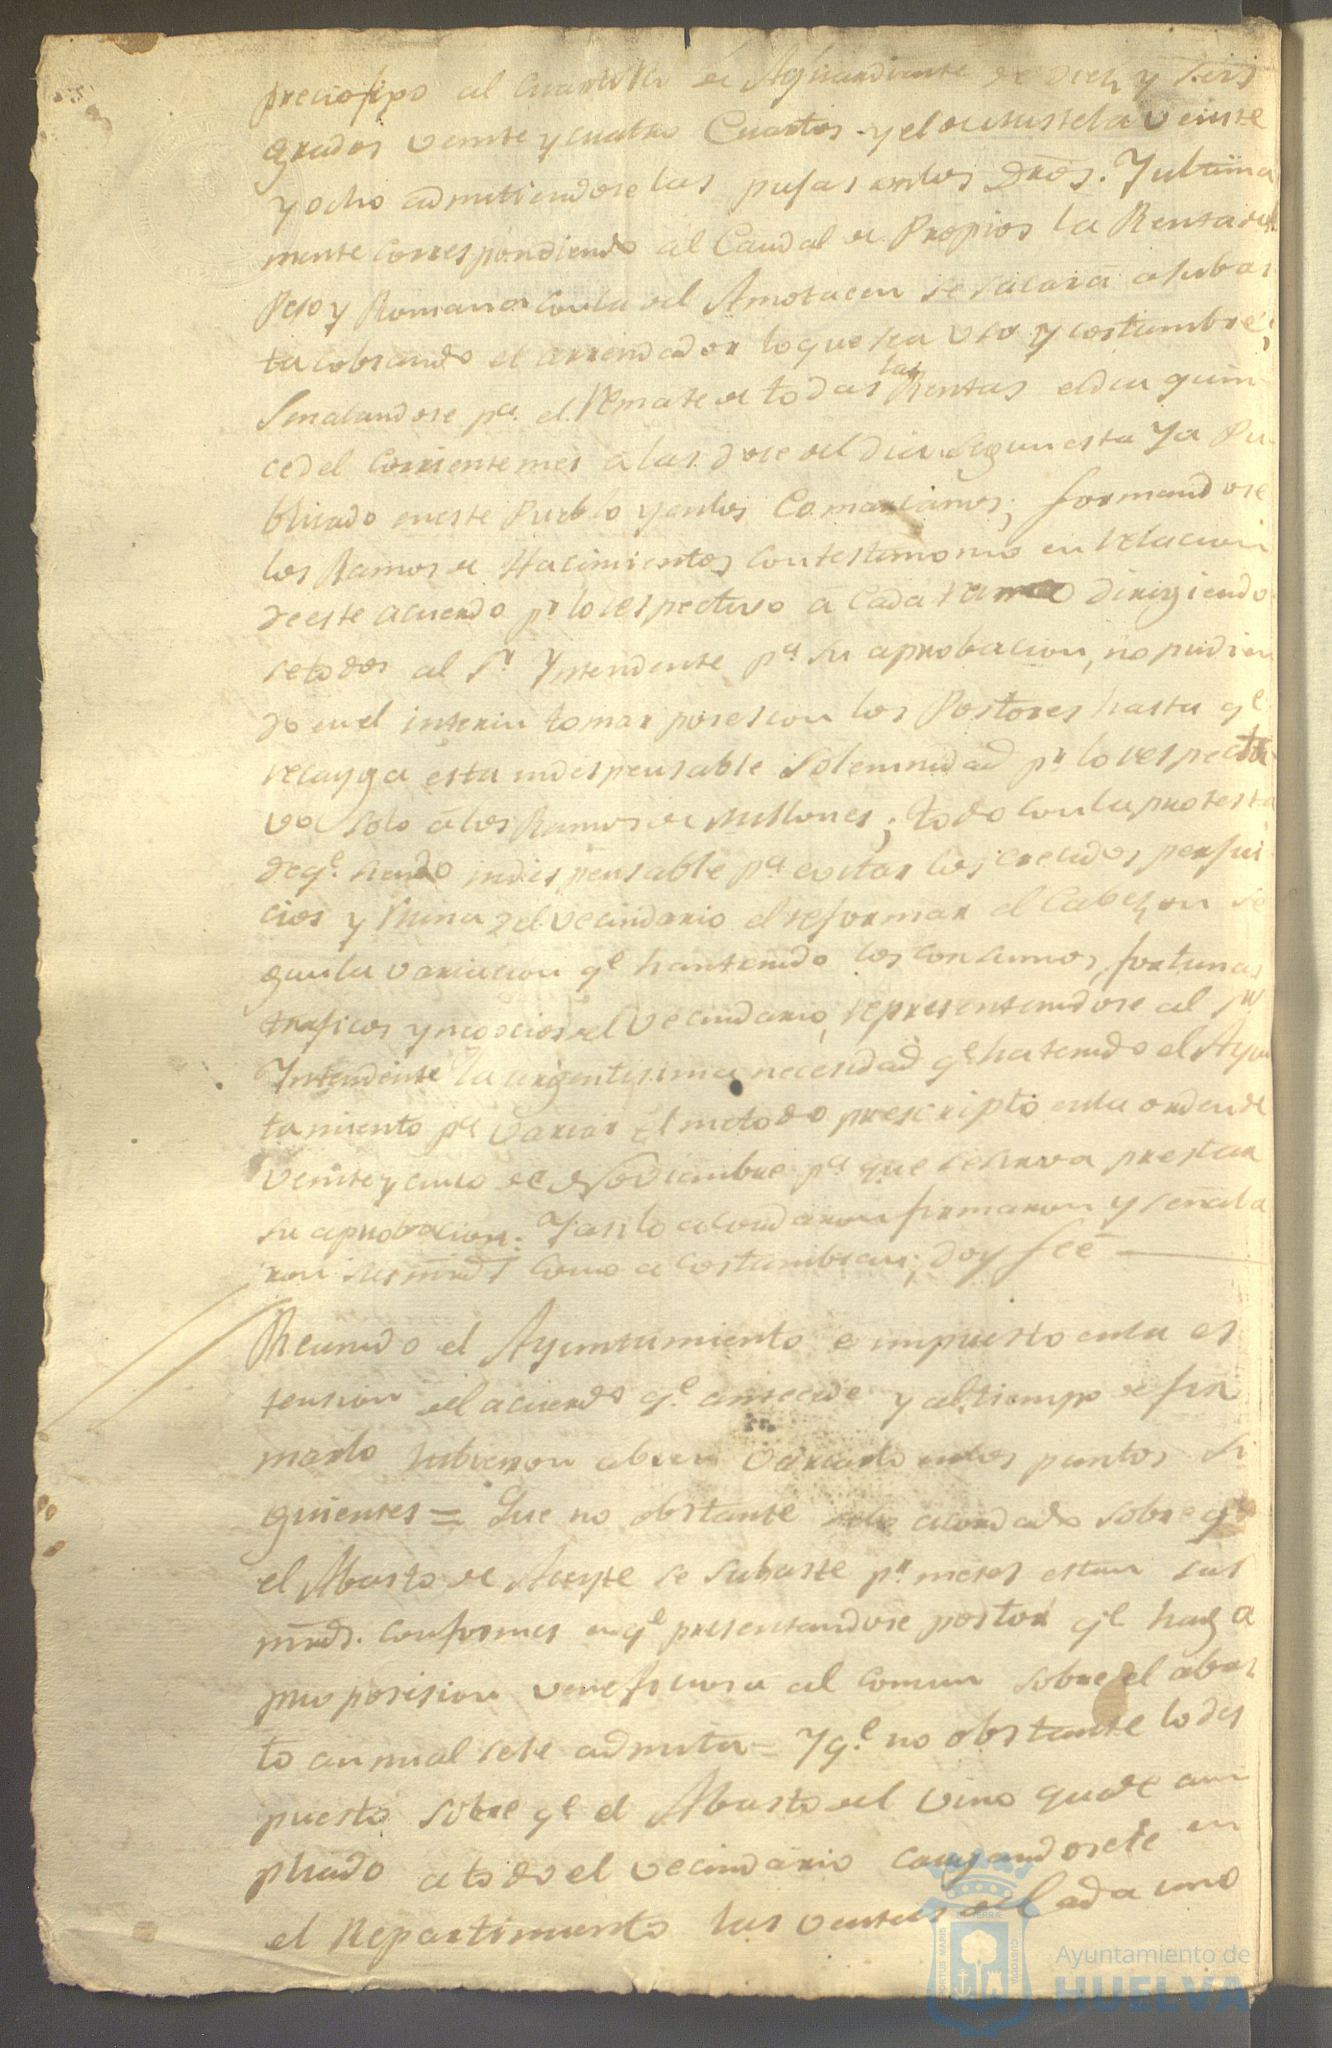 precio fixo al Cuartillo de Aguardiente de diez y seis
grados veinte y cuatro Cuartos y el de veinte
y ocho admitiendose las pujas en los Dros. Y ultima
mente correspondiendo al Caudal de Propios la Renta del
Peso y Romana con la del Amotacen se sacará a subas
ta cobrando el arrendador lo que sea uso y costumbre;
Señalandose pa. el Remate de todas las Rentas el dia quin
ce del corriente mes a las doce del dia segun esta ya Pu
blicado en este Pueblo y en los Comarcanos; formandose
los Ramos de Hacimientos con testimonio en relacion
de este acuerdo pr. lo respectivo a cada ramo dirigiendo
se todos al Sr. Yntendente pa. su aprobacion, no pudien
do en el interin tomar posesion los Postores hasta qe.
recayga esta indispensable solemnidad pr. lo respecti
vo solo á los Ramos de Millones; todo con la protesta
de qe. siendo indispensable pa. evitar los crecidos perjui
cios y Ruina del vecindario el reformar el Cabezon se
gun la variacion qe. han tenido los consumos, fortunas
traficos y negocios del Vecindario, representandose al Sr.
Intendente la urgentisima necesidad qe. ha tenido el Ayun
tamiento pa. variar el metodo prescripto en la orden de
veinte y cinco de Noviembre pa. que se sirva prestar
su aprobacion. Y asi lo acordaron firmaron y señala
ron sus mrds. como acostumbran; doy feé
Reunido el Ayuntamiento e impuesto en la es
tension del acuerdo qe. antecede y al tiempo de fir
marlo hubieron variado en los puntos si
guientes = Que no obstante lo acordado sobre qe.
el Abasto de Aceyte se subaste pr. meses estan sus
mrds. conformes en qe. presentandose postor qe. haga
proposision veneficiosa al comun sobre el abas
to annual se le admita = Y qe. no obstante lo dis
puesto sobre qe. el Abasto del vino quede am
pliado a todo el vecindario cargandosele en
el Repartimiento las ventas de Cada uno
PORTUS MARIS
TERRAE
CUSTODIA
Ayuntamiento de
HUELVA